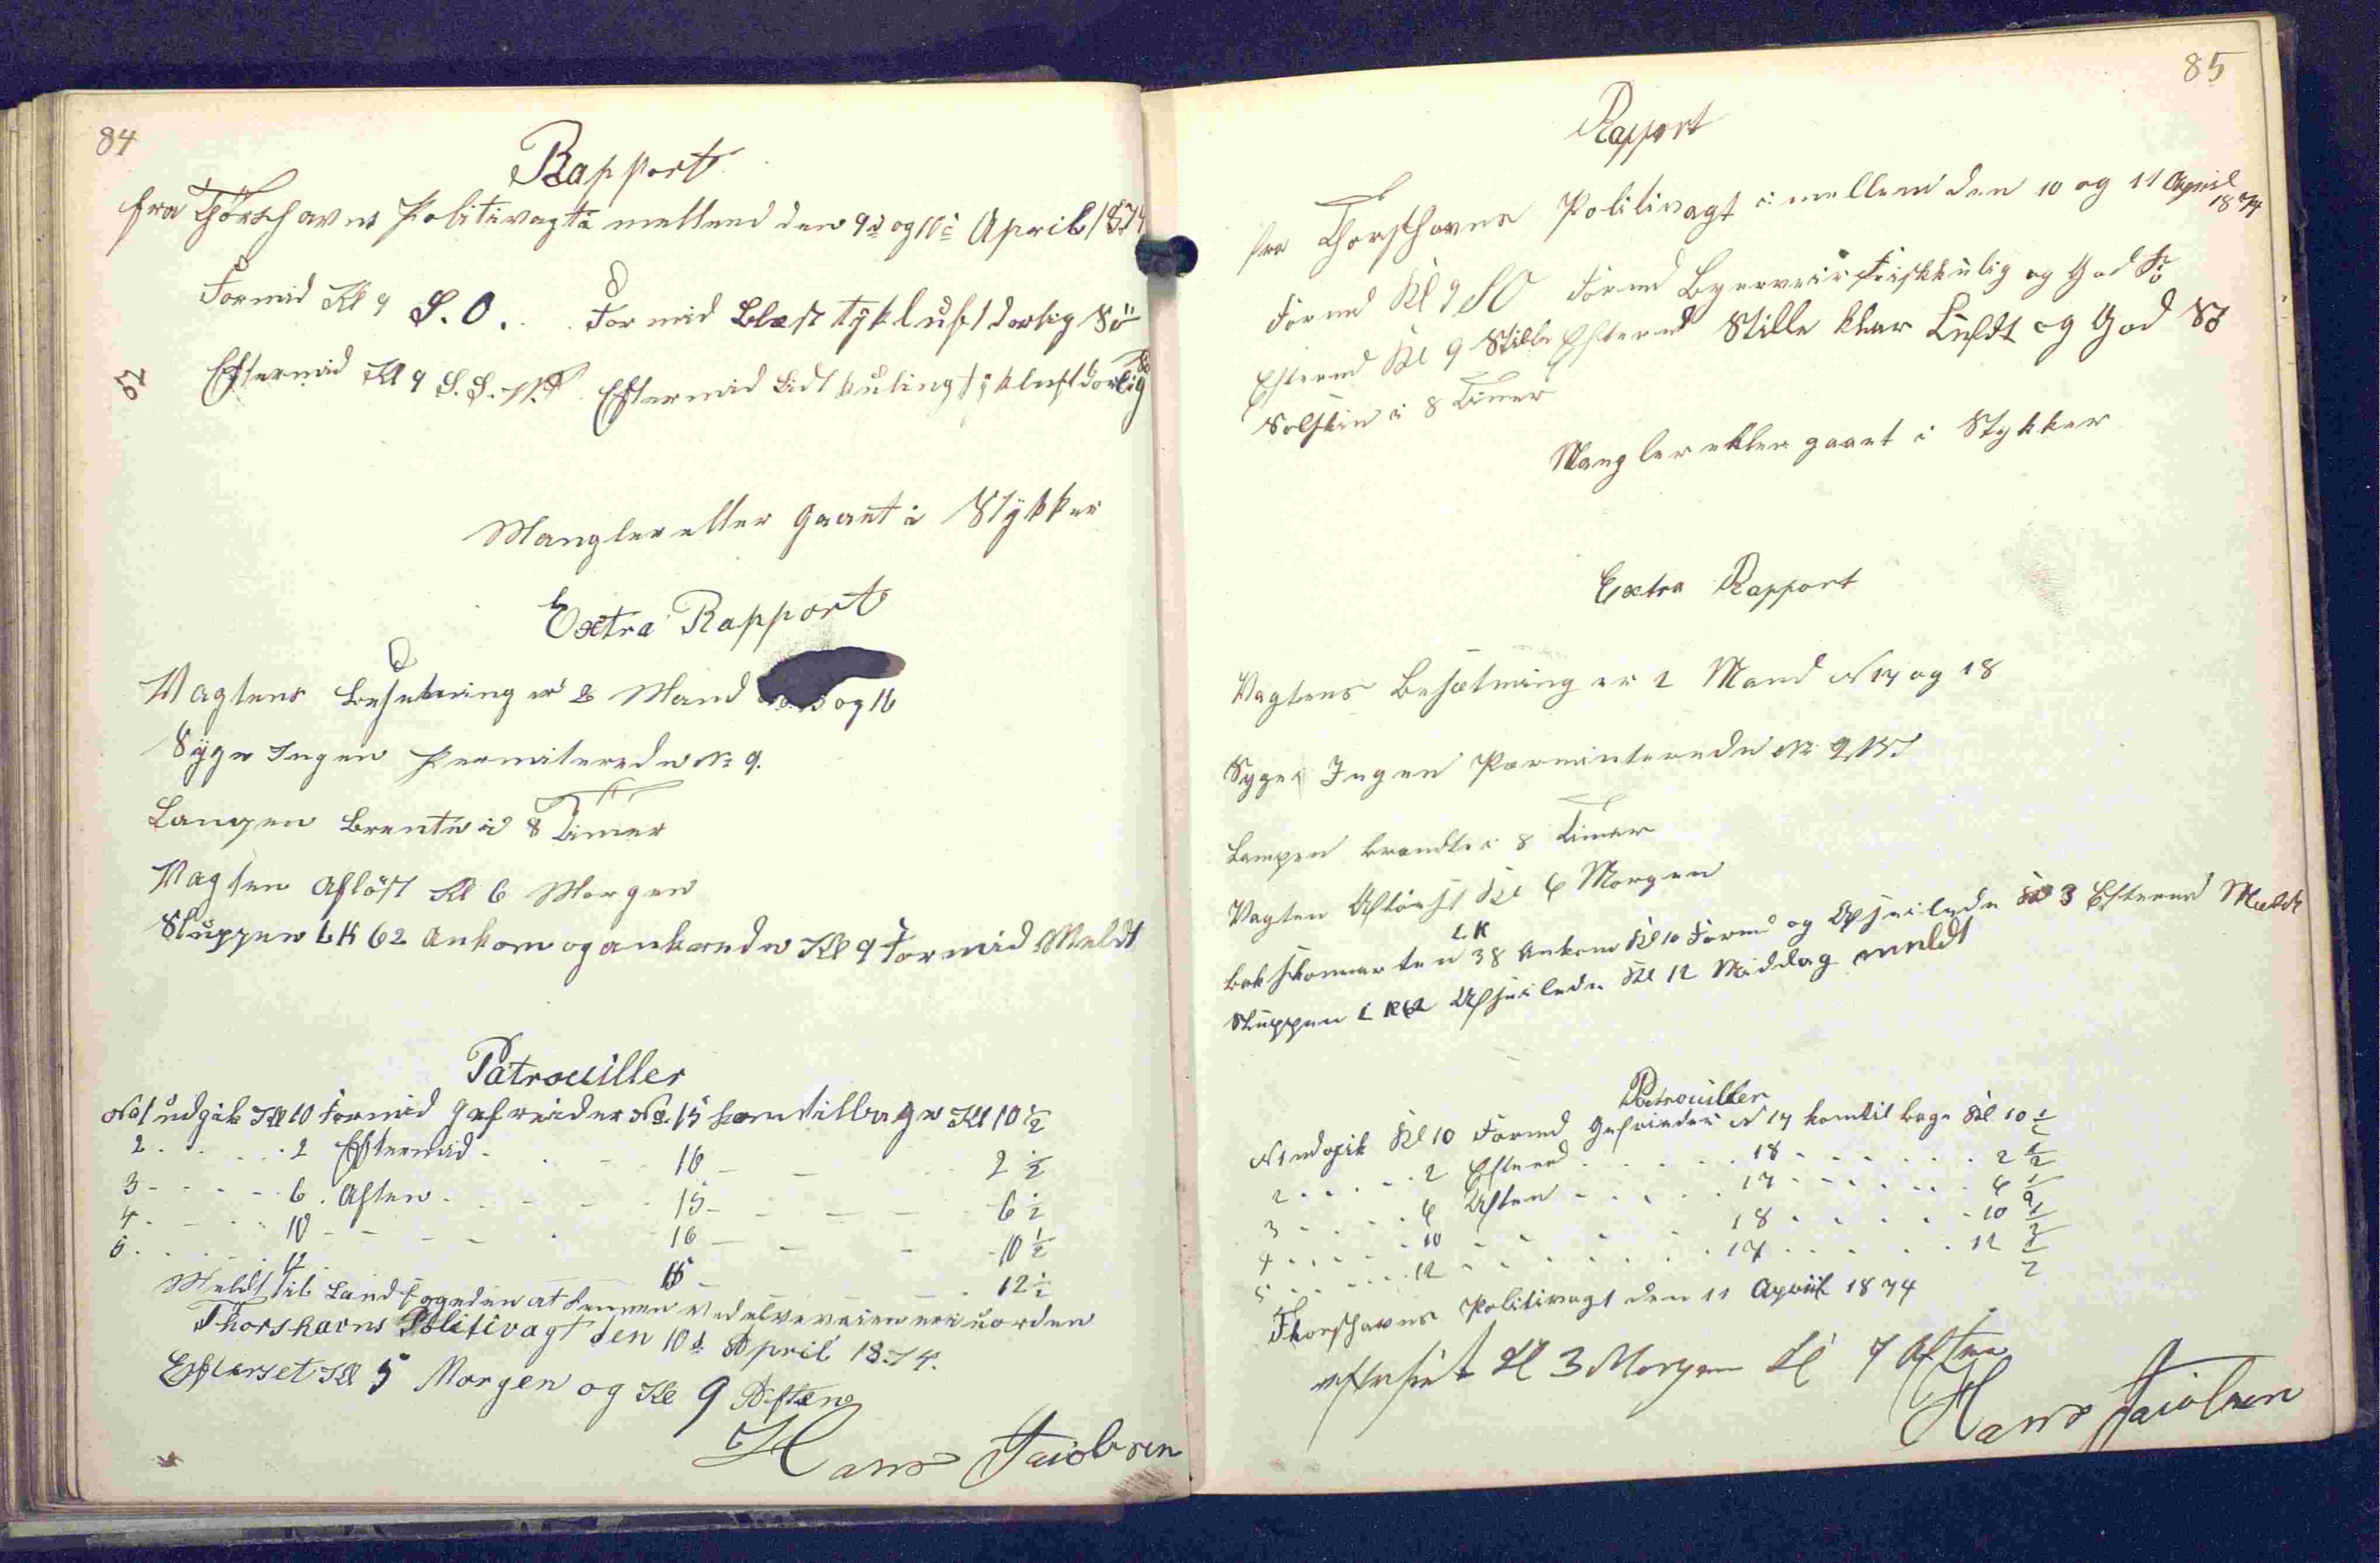 84
Rapport
fra Thorshavns Politivagt i mellem den 9d og 10d April 1874
Formid Kl 9 S.O. Formid Blæst tyk luft dorlig Sö
Eftermid Kl 9 S.S.W. Eftermid Lidt kuling tyk luft dorlig Sö
Mangler eller gaaet i Stykker
Extra Rapport
Vagtens Besetning er 2 Mand og 16
Syge Ingen Permiterede No 9.
Lampen Brente i 8 Timer
Vagten Aflöst Kl 6 Morgen
Sluppen LK 62 Ankom og ankrede Kl 9 Formid Meldt
Patrouiller
No 1 udgik Kl 10 Formid Gefreider No. 15 kom tilbage Kl 10 1/2
2 . . . . 2 Eftermid - 16 - - 2 1/2
3 - - - 6 . Aften - 15 - - - 6 1/2
4 - - - 10 - - - 16 - - - 10 1/2
5 . . . 12 - 15 - - 12 1/2
Meldt til Landfogeden at ved er i uorden
Thorshavns Politivagt den 10d April 1874.
Efterset Kl 5 Morgen og Kl 9 Aften
Hans Jacobsen
85
Rapport
fra Thorshavns Politivagt i mellem den 10 og 11 April 1874
Formd Kl 9 SO Formd Byerveir Friskkulig og God Sö
Eftermd Kl 9 Stille Eftermd Stille klar Luft og God Sö
Solskin i 8 Timer
Mangler eller gaaet i Stykker
Extra Rapport
Vagtens Besætning er 2 Mand N 17 og 18
Syge Ingen Parminterede No 9
Lampen brændte i 8 Timer
Vagten Aflöst Kl 6 Morgen
LK 38 Ankom Kl 10 Formd og Afseilede Kl 3 Eftermd Meldt
Sluppen LK 62 Afseilede Kl 12 Middag meldt
Patrouiller
N 1 udgik Kl 10 Formd Gefreider N 17 kom tilbage Kl 10 1/2
2 . . . . 2 Eftermd . . . . 18 - - - - 2 1/2
3 - - - 6 Aften - - - 17 - - - - 6 1/2
4 . . . . 10 - - - - 18 - - - - 10 1/2
5 . . . . 12 - - - - 17 - - - - 12 1/2
Thorshavns Politivagt den 11 April 1874
efterset Kl 3 Morgen Kl 7 Aften
Hans Jacobsen